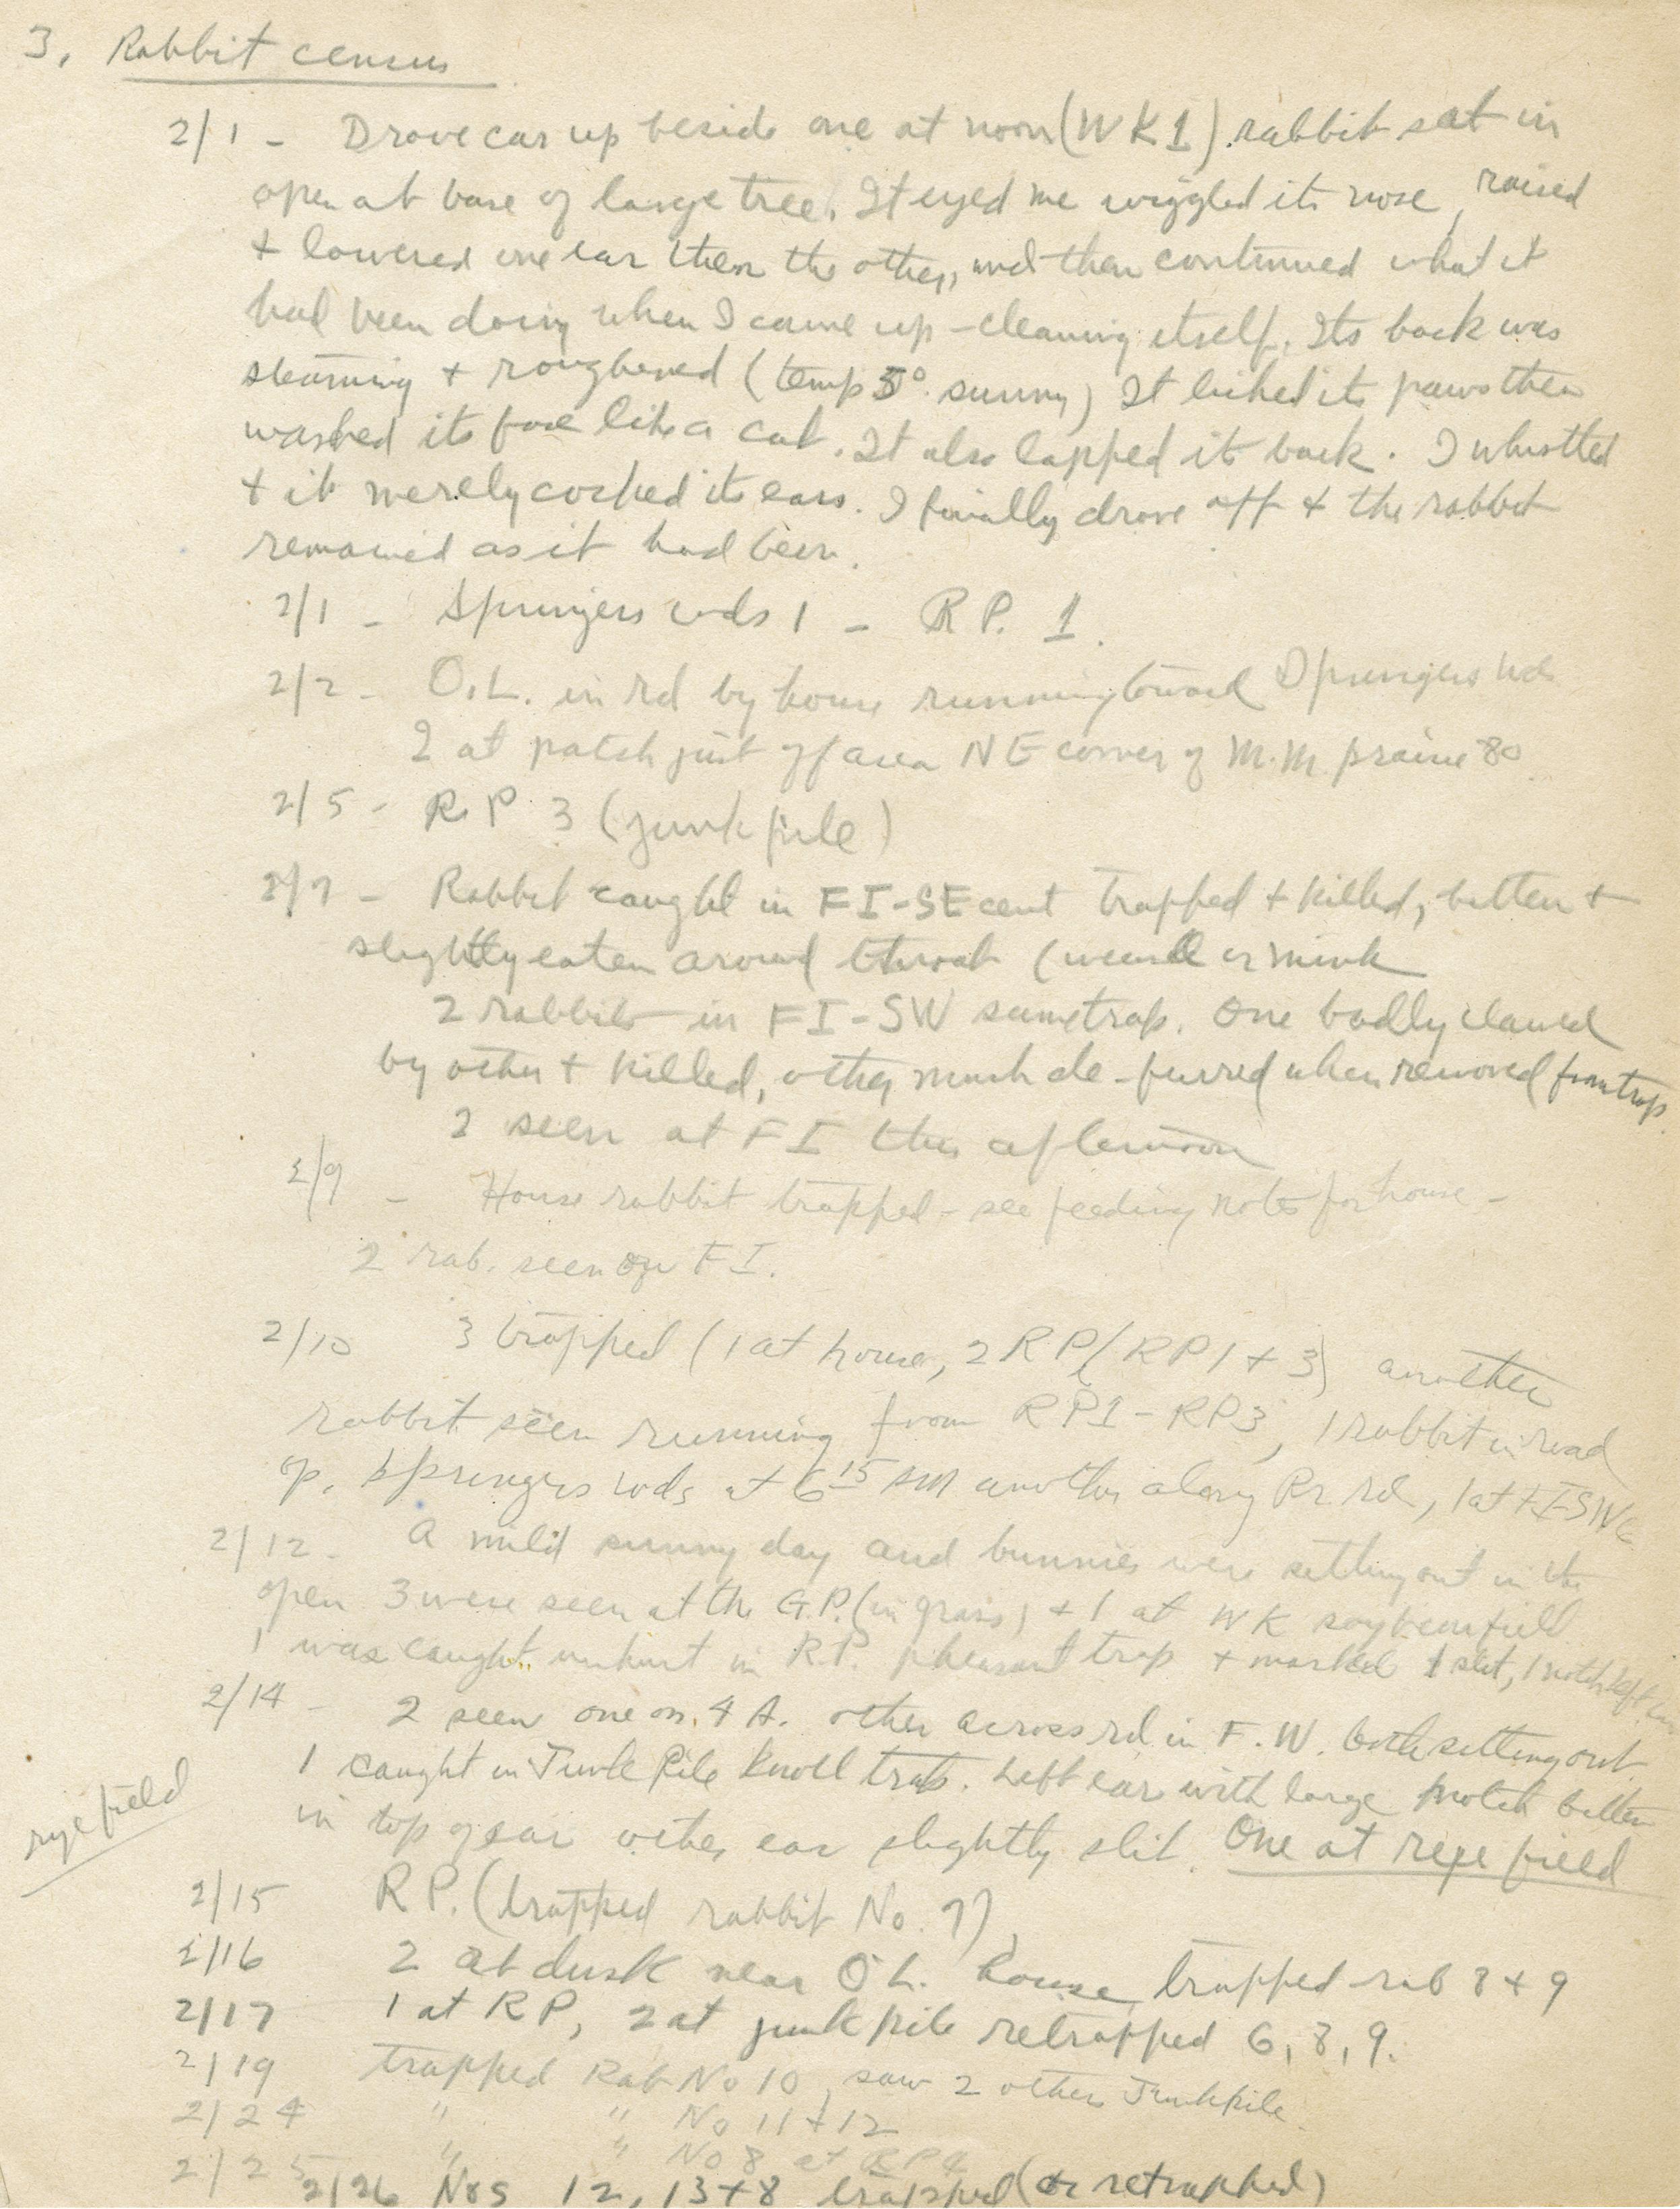 3. Rabbit census
2/1 - Drove car up beside one at noon (WK1). rabbit sat in
open at base of large tree. It eyed me wiggled its nose, raised
+ lowered one ear then the other, and then continued what it
had been doing when I came up - cleaning itself. Its back was
steaming + roughened (temp 5° sunny) It licked its paws then
washed its face like a cat. It also lapped its back. I whistled
+ it merely cocked its ears. I finally drove off + the rabbit
remained as it had been.
2/1 - Springers wds 1 - R P. 1.
2/2 - O.L. in rd by house running toward Springers wds
2 at patch just off area NE corner of M.M. prairie 80
2/5 - R.P 3 (junk pile)
2/7 - Rabbit caught in FI-SE cent trapped + killed, bitten +
slightly eaten around throat (weasel or mink
2 rabbits in FI-SW same trap. One badly clawed
by other + killed, other much de-furred when removed from trap.
2 seen at FI this afternoon
2/9 - House rabbit trapped - see feeding notes for house -
2 rab. seen on FI.
2/10 3 trapped (1 at house, 2 RP (RP1 + 3) another
rabbit seen running from RP1 - RP3, 1 rabbit in road
op. Springers wds at 6 15 AM another along Pr. rd, 1 at FI-SW
2/12 - A mild sunny day and bunnies were setting out in the
open 3 were seen at the G.P. (in grass) + 1 at WK soybean field
1 was caught unhurt in R.P. pheasant trap + marked 1 slit, 1 notch left
2/14 - 2 seen one on 4 A. other across rd in F.W. both setting out.
1 caught in Junk Pile knoll trap. Left ear with large notch bitten
in top of ear other ear slightly slit. One at rye field
rye field
2/15 R P. (trapped rabbit No. 7)
2/16 2 at dusk near O L. house, trapped rab 8 + 9
2/17 1 at RP, 2 at junk pile retrapped 6, 8, 9.
2/19 trapped Rab No 10, saw 2 others Junkpile
2/24 " " No 11 + 12
2/25 " " No 8 at RP4
2/26 Nos 12, 13 + 8 trapped (or retrapped)